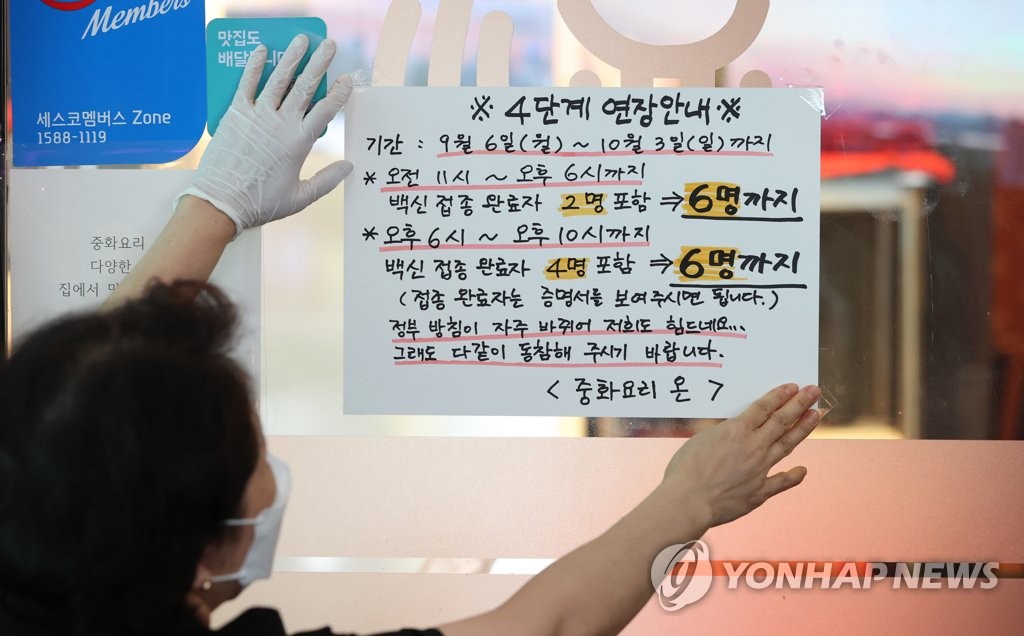 Members
세스코멤버스 Zone
1588-1119
맛집도
중화요리
다양한
집에서
※ 4단계 연장안내 ※
기간 : 9월 6일(월) ~ 10월 3일(일)까지
* 오전 11시 ~ 오후 6시까지
백신 접종 완료자 2명 포함 ⇒ 6명까지
* 오후 6시 ~ 오후 10시까지
백신 접종 완료자 4명 포함 ⇒ 6명까지
(접종 완료자는 증명서를 보여주시면 됩니다.)
정부 방침이 자주 바뀌어 저희도 힘드네요...
그래도 다같이 동참해 주시기 바랍니다.
< 중화요리 온 >
YONHAP NEWS